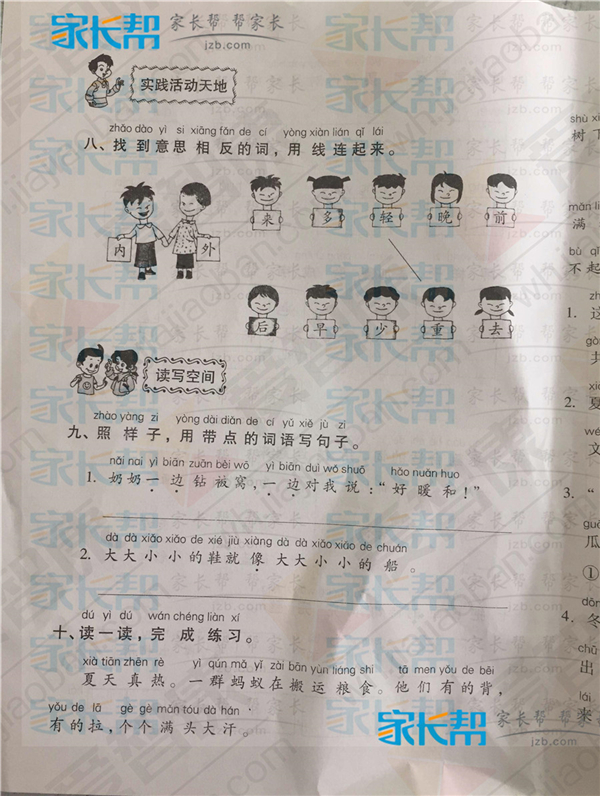 家长帮 家长帮 帮家长
jzb.com
实践活动天地
zhǎo dào yì si xiāng fǎn de cí yòng xiàn lián qǐ lái
八、找到意思相反的词，用线连起来。
内 外
来 多 轻 晚 前
后 早 少 重 去
读写空间
zhào yàng zi yòng dài diǎn de cí yǔ xiě jù zi
九、照样子，用带点的词语写句子。
nǎi nai yì biān zuān bèi wō yì biān duì wǒ shuō hǎo nuǎn huo
1. 奶奶一边钻被窝，一边对我说：“好暖和！”
dà dà xiǎo xiǎo de xié jiù xiàng dà dà xiǎo xiǎo de chuán
2. 大大小小的鞋就像大大小小的船。
dú yì dú wán chéng liàn xí
十、读一读，完成练习。
xià tiān zhēn rè yì qún mǎ yǐ zài bān yùn liáng shi tā men yǒu de bēi
夏天真热。一群蚂蚁在搬运粮食。他们有的背，
yǒu de lā gè gè mǎn tóu dà hàn
有的拉，个个满头大汗。
shù xià
树下
mǎn
满
bù
不起
1. 这
2. 夏
wén
文
3. “
guā
瓜
①
4. 冬
chū
出
lái
来
家长帮 家长帮 帮家长
jzb.com